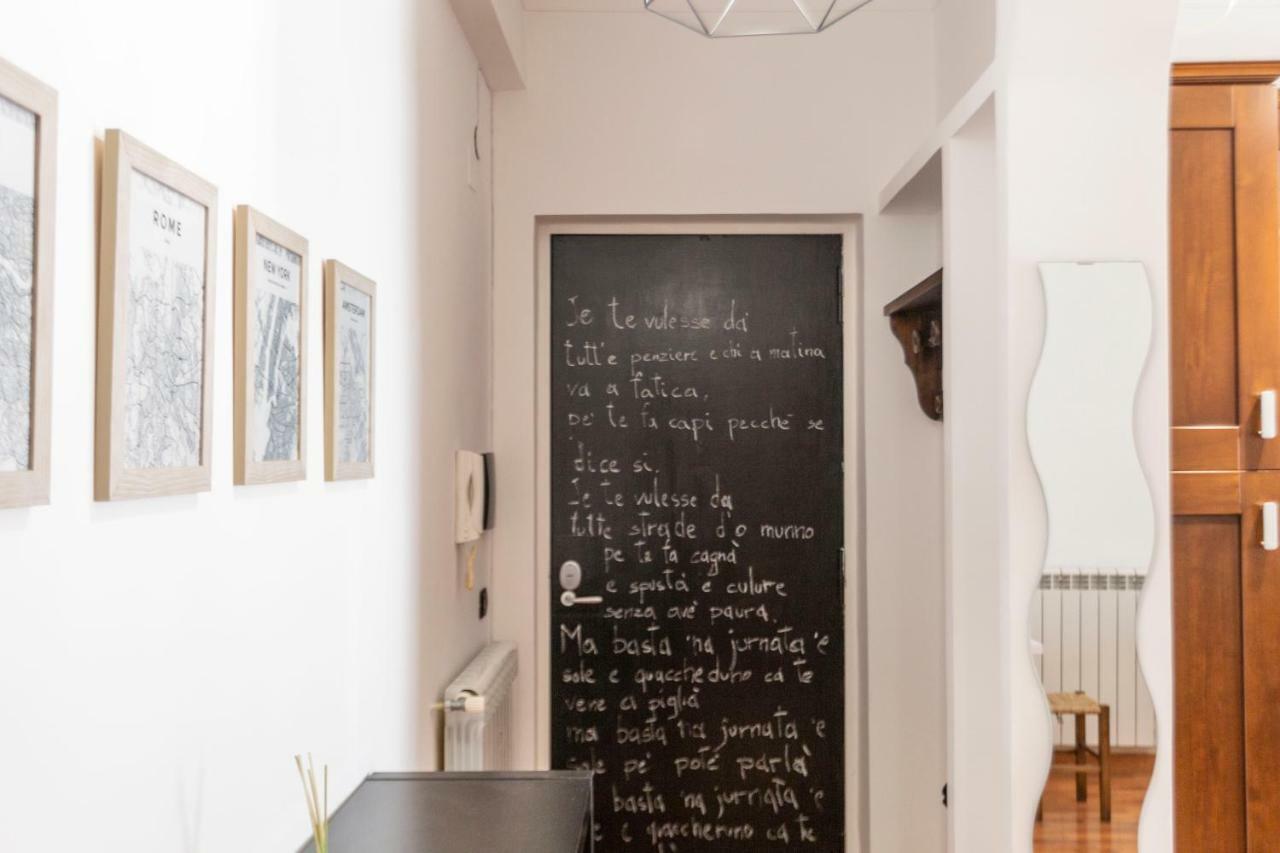 ROME
NEW YORK
AMSTERDAM
Je te vulesse da'
tutt'e penziere e chi a matina
va a fatica,
pe' te fa capi pecchè se
dice si.
Je te vulesse da
tutte strade d'o munno
pe te fa cagnà
e spustà e culure
senza avè paura.
Ma basta 'na jurnata 'e
sole e quaccheduno ca te
vene a piglià
ma basta 'na jurnata 'e
sole pe' potè parlà
basta 'na jurnata 'e
e quaccheruno ca te